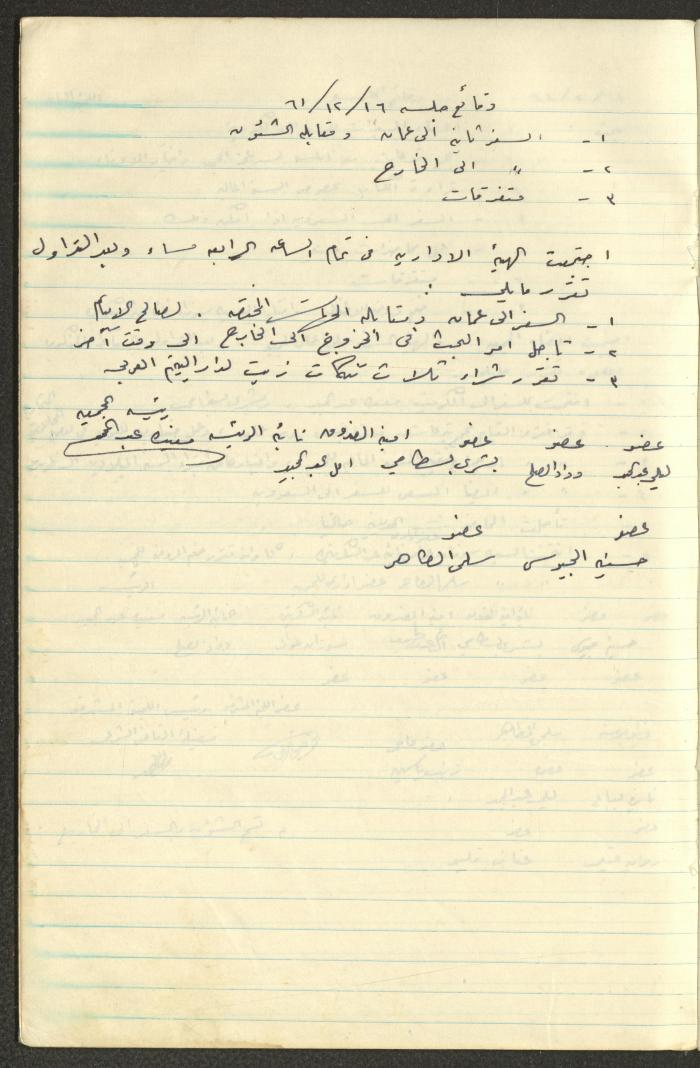 وقائع جلسه ١٦/١٢/٦١
١- السفر ثانية الى عمان ومقابلة الشئون
٢- " الى الخارج
٣- متفرقات
اجتمعت الهيئة الاداريه في تمام الساعه الرابعه مساء وبعد التداول
تقرر ما يلي :
١- السفر الى عمان ومقابلة الجهات المختصه . لصالح الايتام
٢- تاجل امر البحث في الخروج الى الخارج الى وقت آخر
٣- تقرر شراء ثلاث تنكات زيت لدار اليتيم العربي
عضو عضو عضو امينة الصندوق نائبة الرئيسه رئيسة الجمعيه
وداد الصلح بشرى بسطامي امل عبد المجيد
عضو عضو
حسنيه الجيوسي سلمى الطاهر